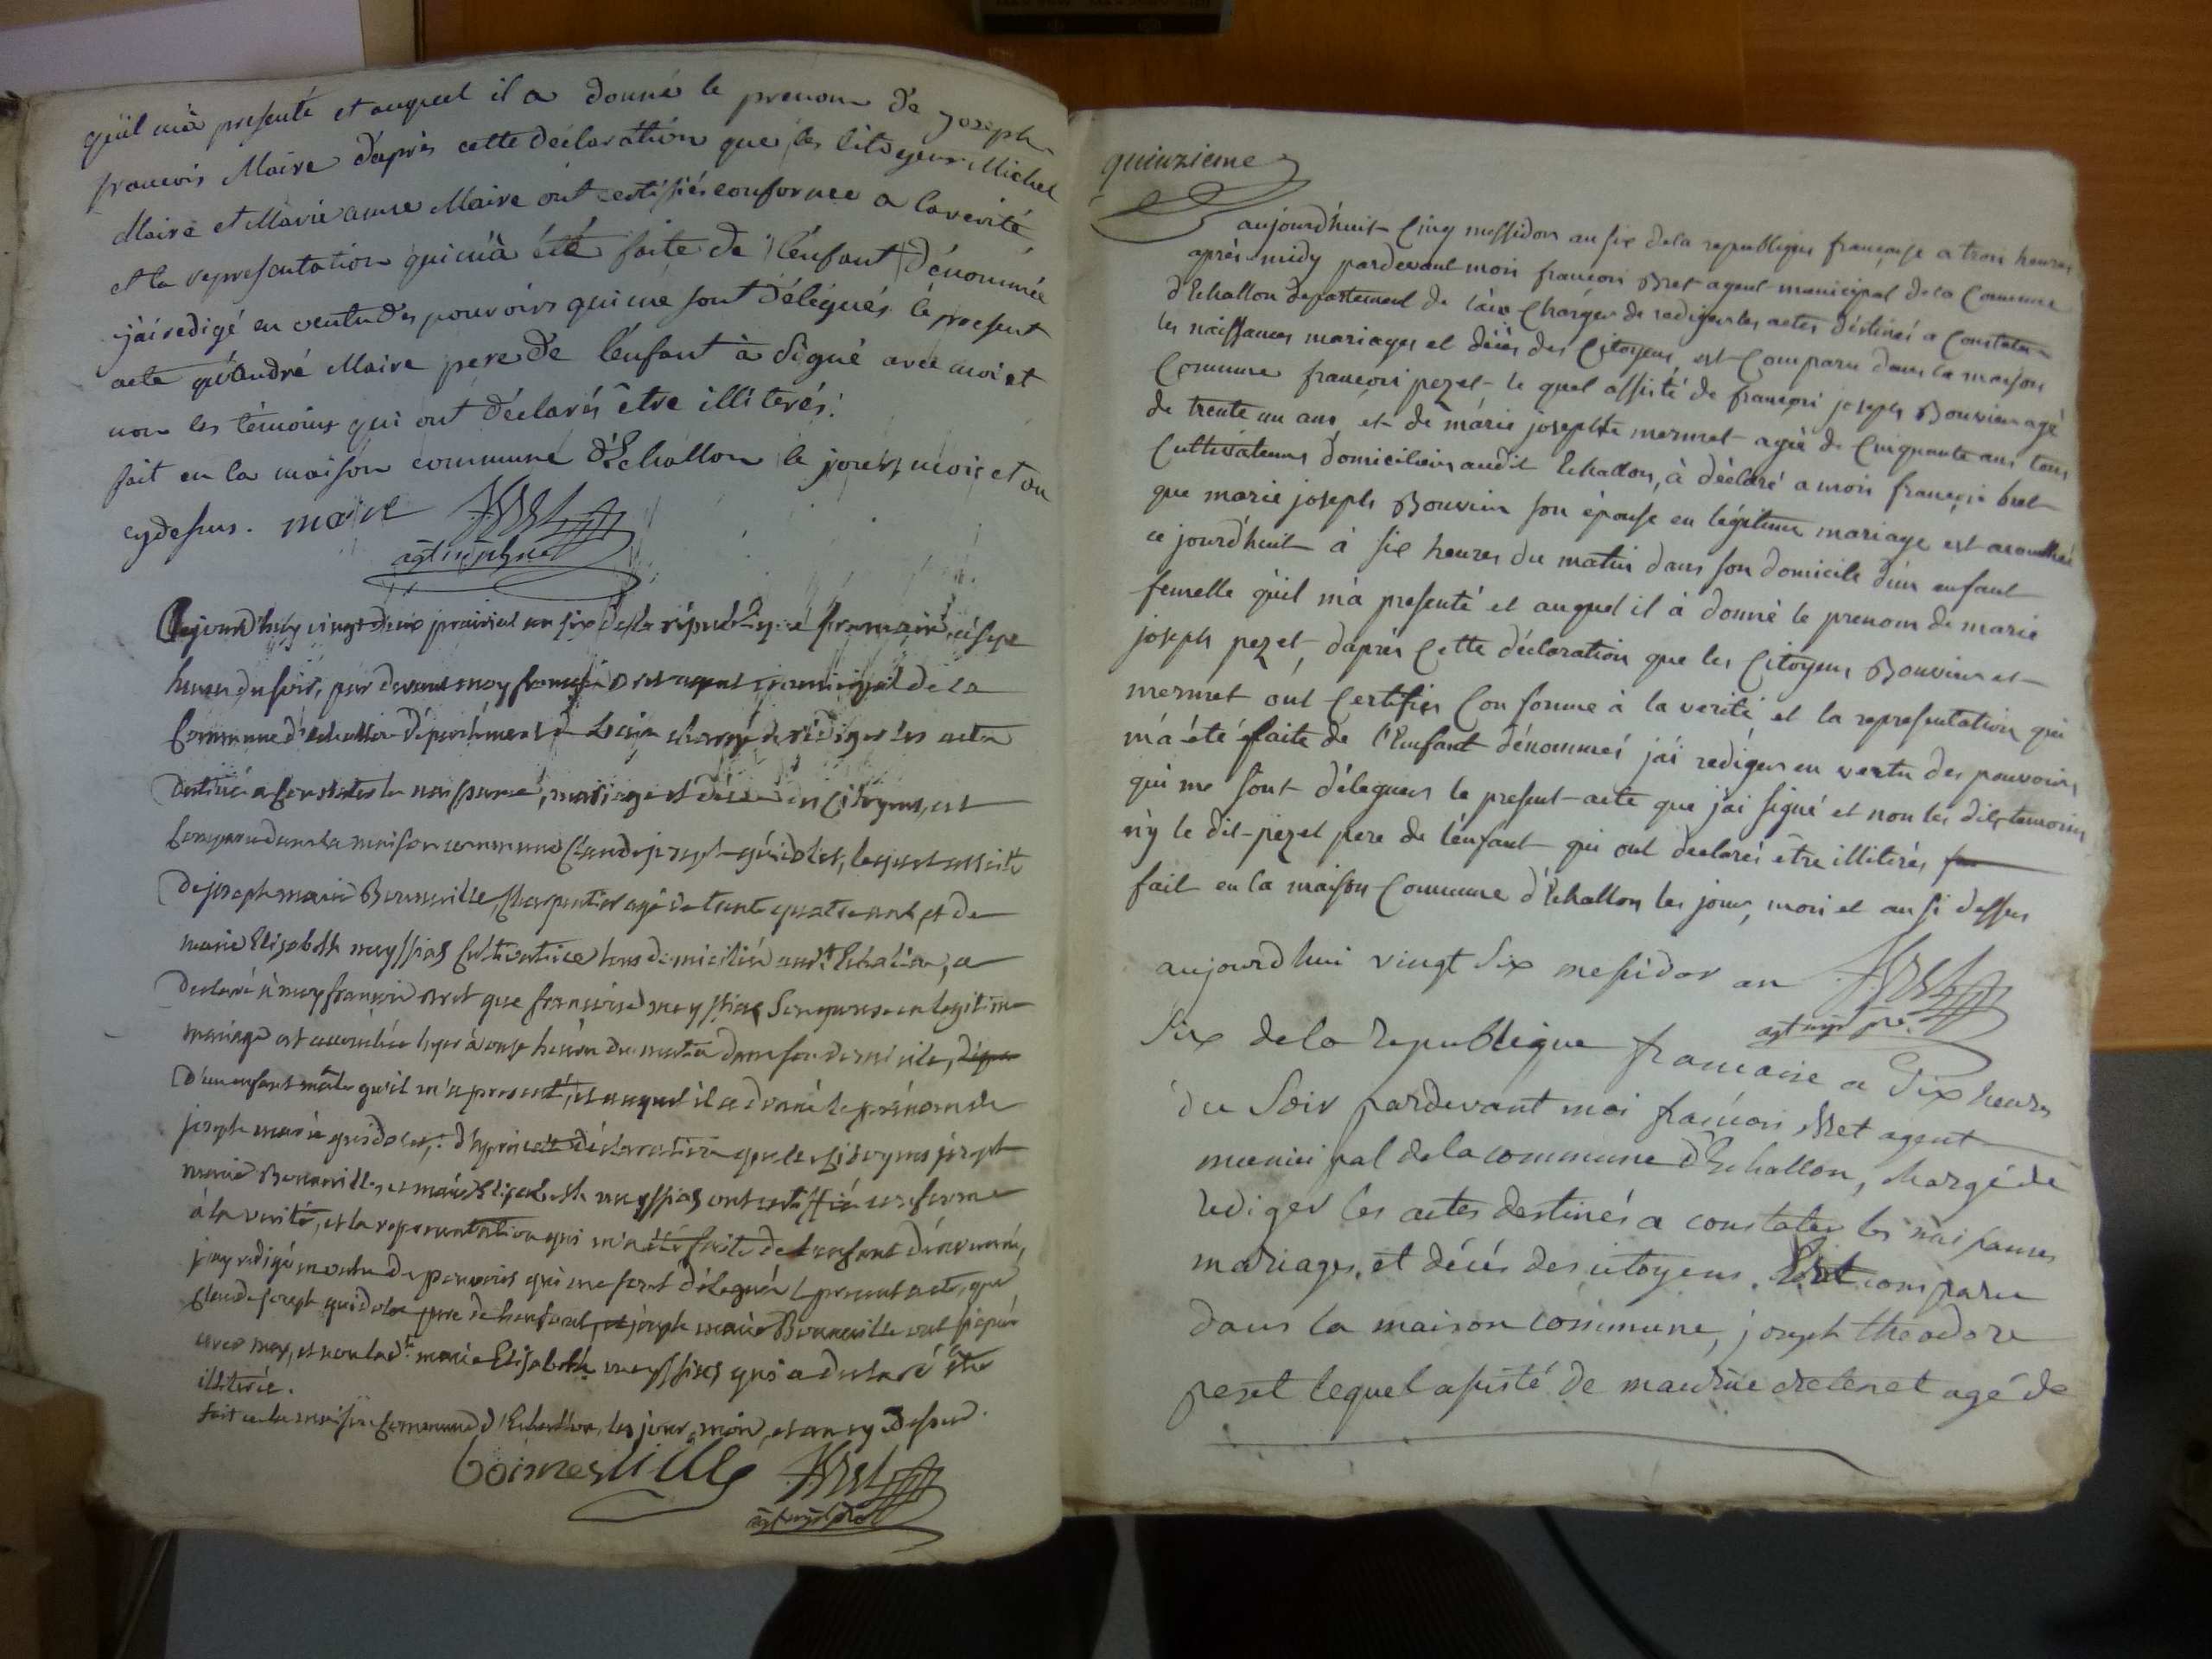 qu'il m'a presenté et auquel il a donné le prenom de joseph
francois Maire d'après cette déclaration que les citoyens Michel
Maire et Marie anne Maire ont certifiés conforme a la verité
et la representation qui m'à été faite de l'enfant dénommé
j'ai redigé en vertu des pouvoirs qui me sont délégués le present
acte qu'andré Maire pere de l'enfant à signé avec moi et
non les témoins qui ont déclarés être illiterés.
fait en la maison commune d'Echallon le jour, mois et an
cydessus. maire
Aujourd'huy vingt deux prairial an six de la république française, à sept
heures du soir, par devant moy françois Bret agent municipal de la
Commune d'echallon département de L'ain chargé de rédiger les actes
destinés a Constater les naissances, mariages et décès des Citoyens, est
Comparu dans la maison commune Claude joseph guidolet, lequel assisté
de joseph marie Bonneville, Charpentier agé de trente quatre ans, et de
marie Elisabeth Cultivatrice tous domiciliés audt Echallon, a
declaré à moy françois Bret que françoise son epouse en legitime
mariage est accouchée hyer à onze heures du matin dans son domicile,
d'un enfant mâle qu'il m'a presenté, et auquel il a donné le prénom de
joseph marie guidolet, d'après cette déclaration que les Citoyens joseph
marie Bonneville et marie Elisabeth ont certiffié conforme
à la verité, et la representation qui m'a été faite de l'enfant dénommé,
j'ay redigé en vertu des pouvoirs qui me sont délégués le present acte, que
Claude joseph guidolet pere de l'enfant, et joseph marie Bonneville ont signé
avec moy, et non lade marie Elisabeth qui a declaré être
illiterée.
fait en la maison Commune d'Echallon, les jour, mois, et an cy dessus.
bonneville Bret
quinzieme
aujourd'huit Cinq messidor an six de la republique française a trois heures
après midy pardevant moi francois Bret agent municipal de la Commune
d'Echallon departement de l'ain Chargé de rediger les actes déstinés a Constater
les naissances mariages et décès des Citoyens, est Comparu dans la maison
Commune françois pezet le quel assisté de françois joseph Bouvier agé
de trente un ans, et de marie josephte mermet agée de Cinquante ans tous
Cultivateurs domiciliers audit Echallon, à déclaré a moi françois bret
que marie joseph Bouvier son épouse en légitime mariage est acouchée
ce jourd'huit à six heures du matin dans son domicile d'un enfant
femelle qu'il m'à presenté et auquel il à donné le prenom de marie
joseph pezet, d'après Cette déclaration que les Citoyens Bouvier et
mermet ont Certifier Conforme à la verité et la representation qui
m'à été faite de l'Enfant dénommé j'ai rediger en vertu des pouvoirs
qui me sont déleguers le present acte que j'ai signé et non les dits temoins
n'y le dit pezet pere de l'enfant qui ont declarés être illiterés
fait en la maison Commune d'Echallon les jour, moi et an si dessus
aujourdhui vingt six messidor an
Six de la republique francaise a Six heures
du Soir pardevant moi francois Bret agent
municipal de la commune d'Echallon, chargé de
rediger les actes destinés a constater les naissances
mariages, et décés des citoyens. Est comparu
dans la maison commune, joseph theodore
pezet lequel assisté de agé de